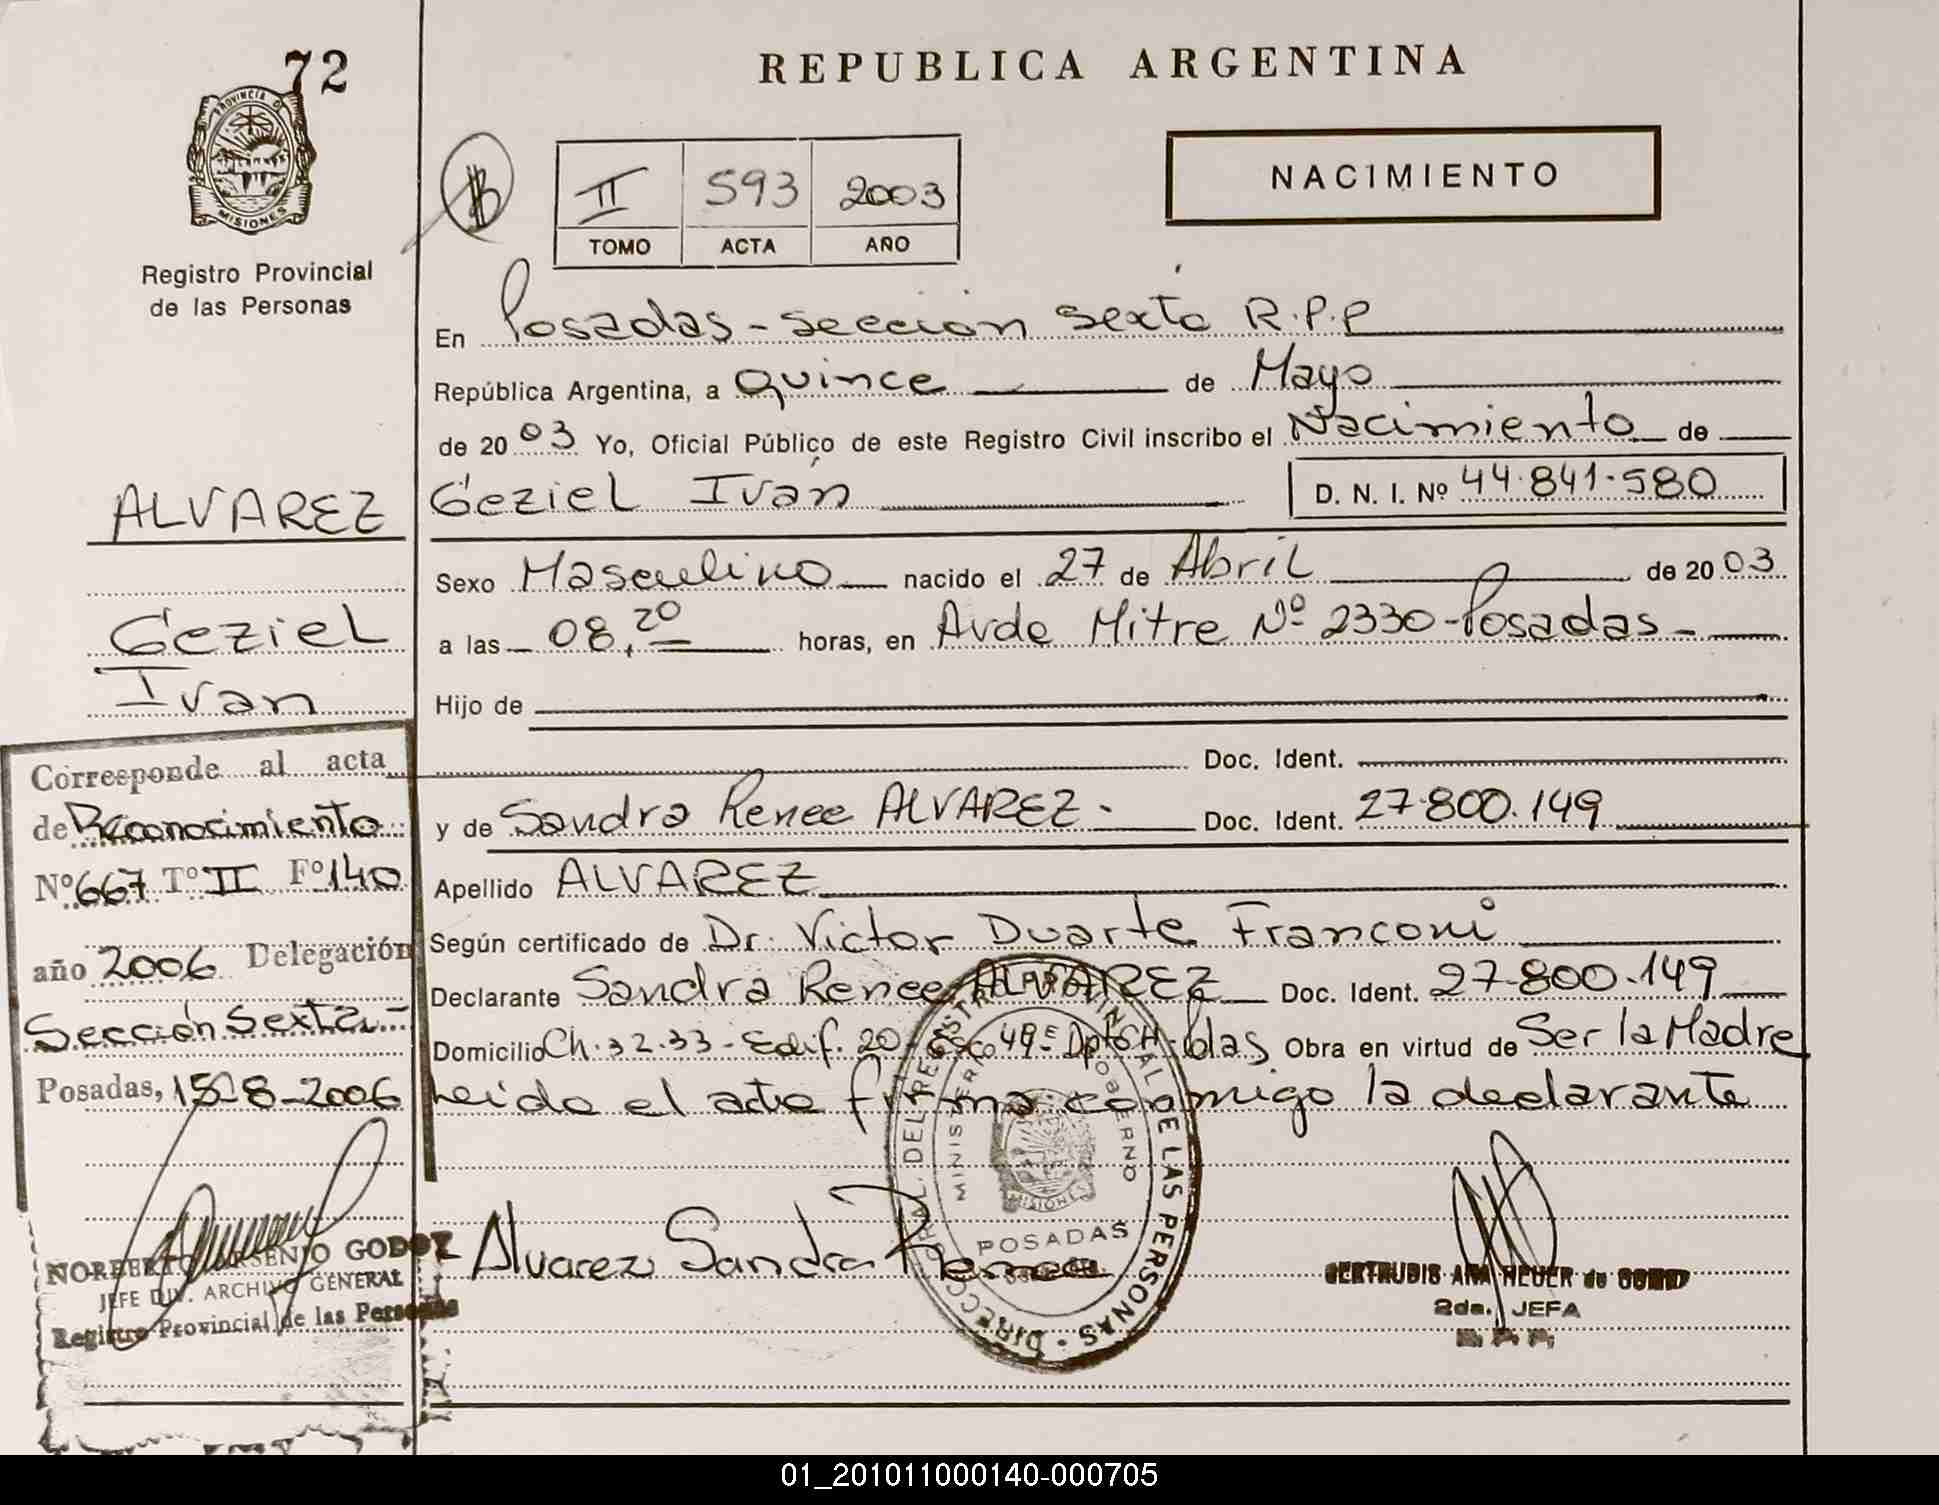 72
PROVINCIA D
MISIONES
Registro Provincial
de las Personas
REPUBLICA ARGENTINA
II 593 2003
TOMO ACTA AÑO
NACIMIENTO
En Posadas - sección sexta R.P.P
República Argentina, a quince de Mayo
de 20 03 Yo, Oficial Público de este Registro Civil inscribo el Nacimiento de
Geziel Iván D. N. I. Nº 44.841.580
Sexo Masculino nacido el 27 de Abril de 20 03
a las 08,20 horas, en Avda Mitre Nº 2330 - Posadas -
Hijo de
Doc. Ident.
y de Sandra Renee ALVAREZ - Doc. Ident. 27.800.149
Apellido ALVAREZ
Según certificado de Dr. Victor Duarte Franconi
Declarante Sandra Renee ALVAREZ Doc. Ident. 27.800.149
Domicilio Ch. 32.33 - Edif. 20 - Esc 49 Dpto H - Pdas Obra en virtud de Ser la Madre
Leido el acta firma conmigo la declarante
Alvarez Sandra Renee
DIRECCION GRAL. DEL REGISTRO PROVINCIAL DE LAS PERSONAS
MINISTERIO GOBIERNO
MISIONES
POSADAS
GERTRUDIS ANA HEUER de
2da. JEFA
R.P.P.
ALVAREZ
Geziel
Ivan
Corresponde al acta
de Reconocimiento
Nº 667 Tº II Fº 140
año 2006 Delegación
Sección Sexta -
Posadas, 15-8-2006
NORBERTO ARSENIO GODOZ
JEFE DIV. ARCHIVO GENERAL
Registro Provincial de las Personas
01_201011000140-000705